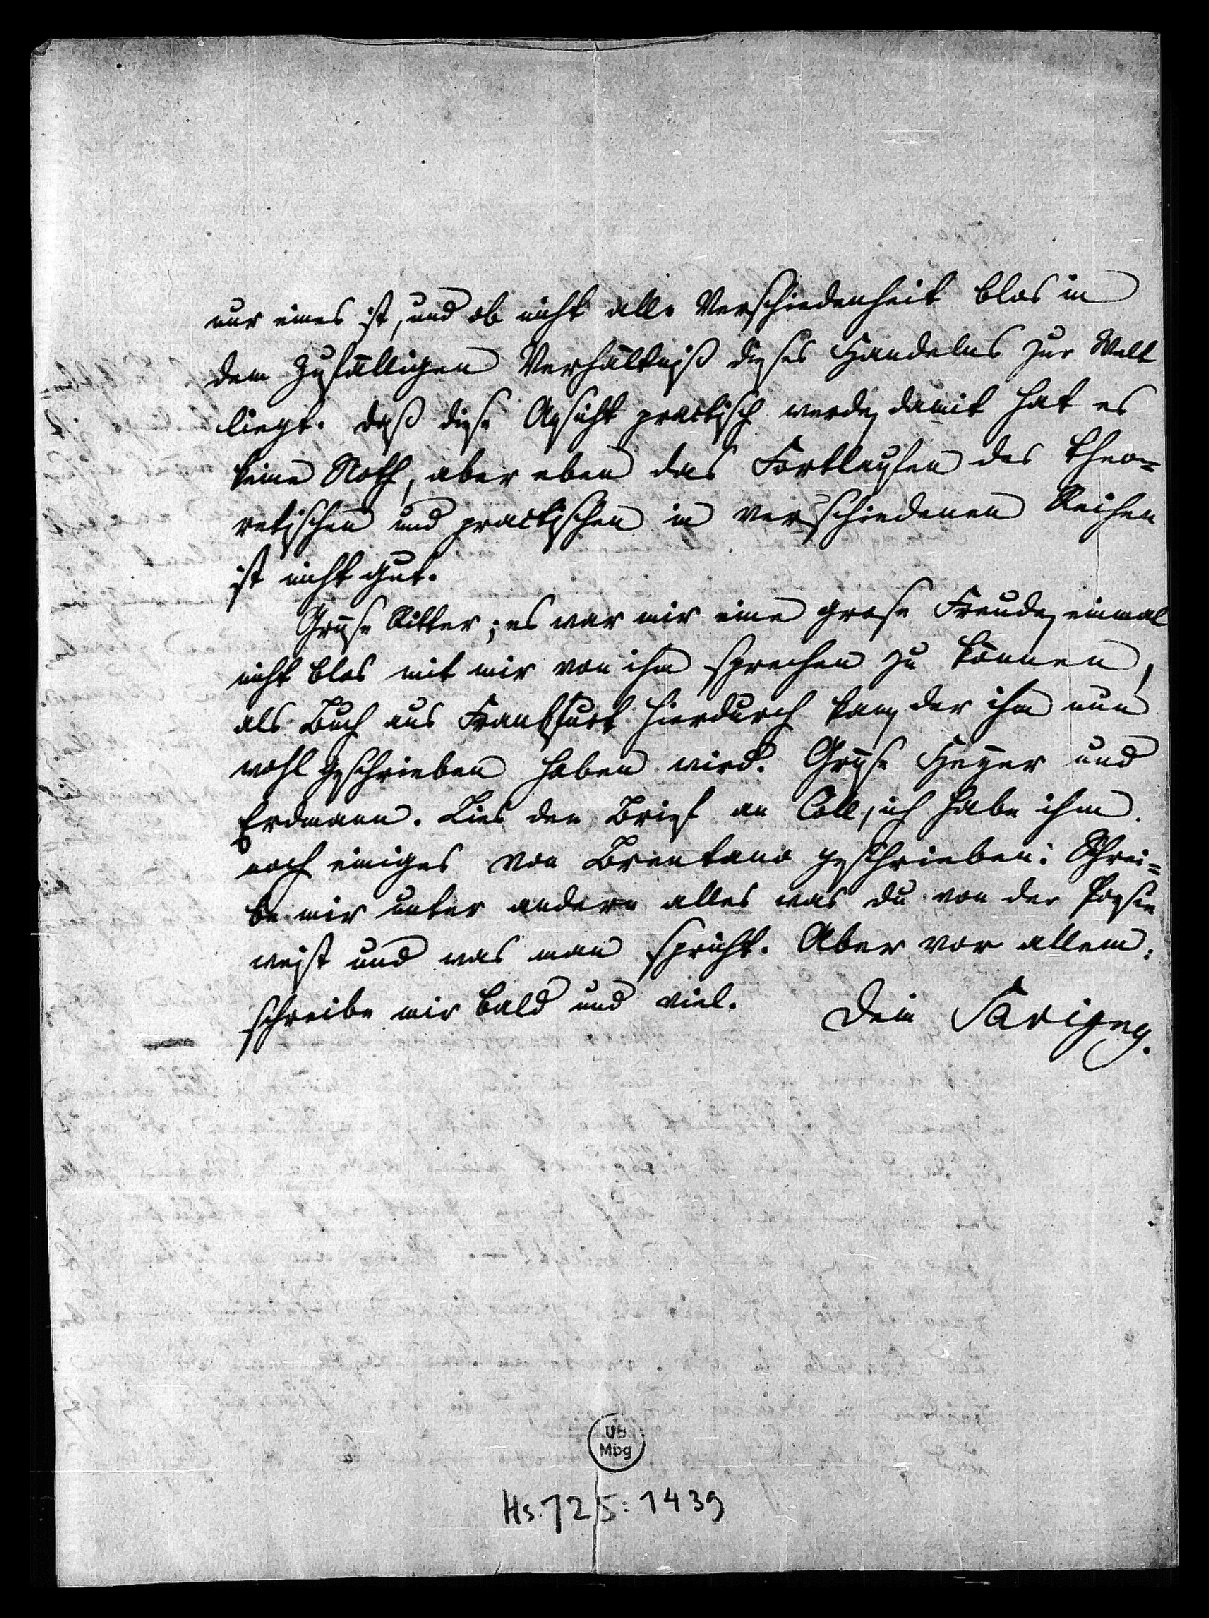 nur eines ist, und ob nicht alle Verschiedenheit blos in
dem zufälligen Verhältniß dieses Handelns zur Welt
liegt. daß diese Ansicht practisch werde, damit hat es
keine Noth, aber eben das Fortlaufen des theo=
retischen und practischen in verschiedenen Reihen
ist nicht gut.
Grüse Ritter; es war mir eine grose Freude, einmal
nicht blos mit mir von ihm sprechen zu können,
als Buch aus Frankfurt hierdurch kam, der ihm nun
wohl geschrieben haben wird. Grüse Heyer und
Erdmann. Lies den Brief an Coll, ich habe ihm
noch einiges von Brentano geschrieben. Schrei=
be mir unter andern alles was du von der Poesie
weist und was man spricht. Aber vor allem:
schreibe mir bald und viel. Dein Savigny.
UB
Mbg
Hs. 725:1439